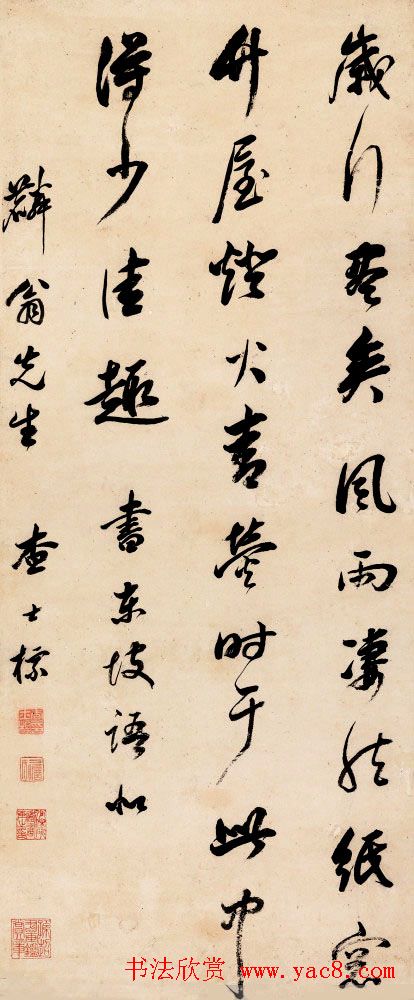 歲行盡矣風雨凄然紙窓
竹屋燈火青熒時于此中
得少佳趣 書東坡語似
麟翁先生 查士標
书法欣赏 www.yac8.com